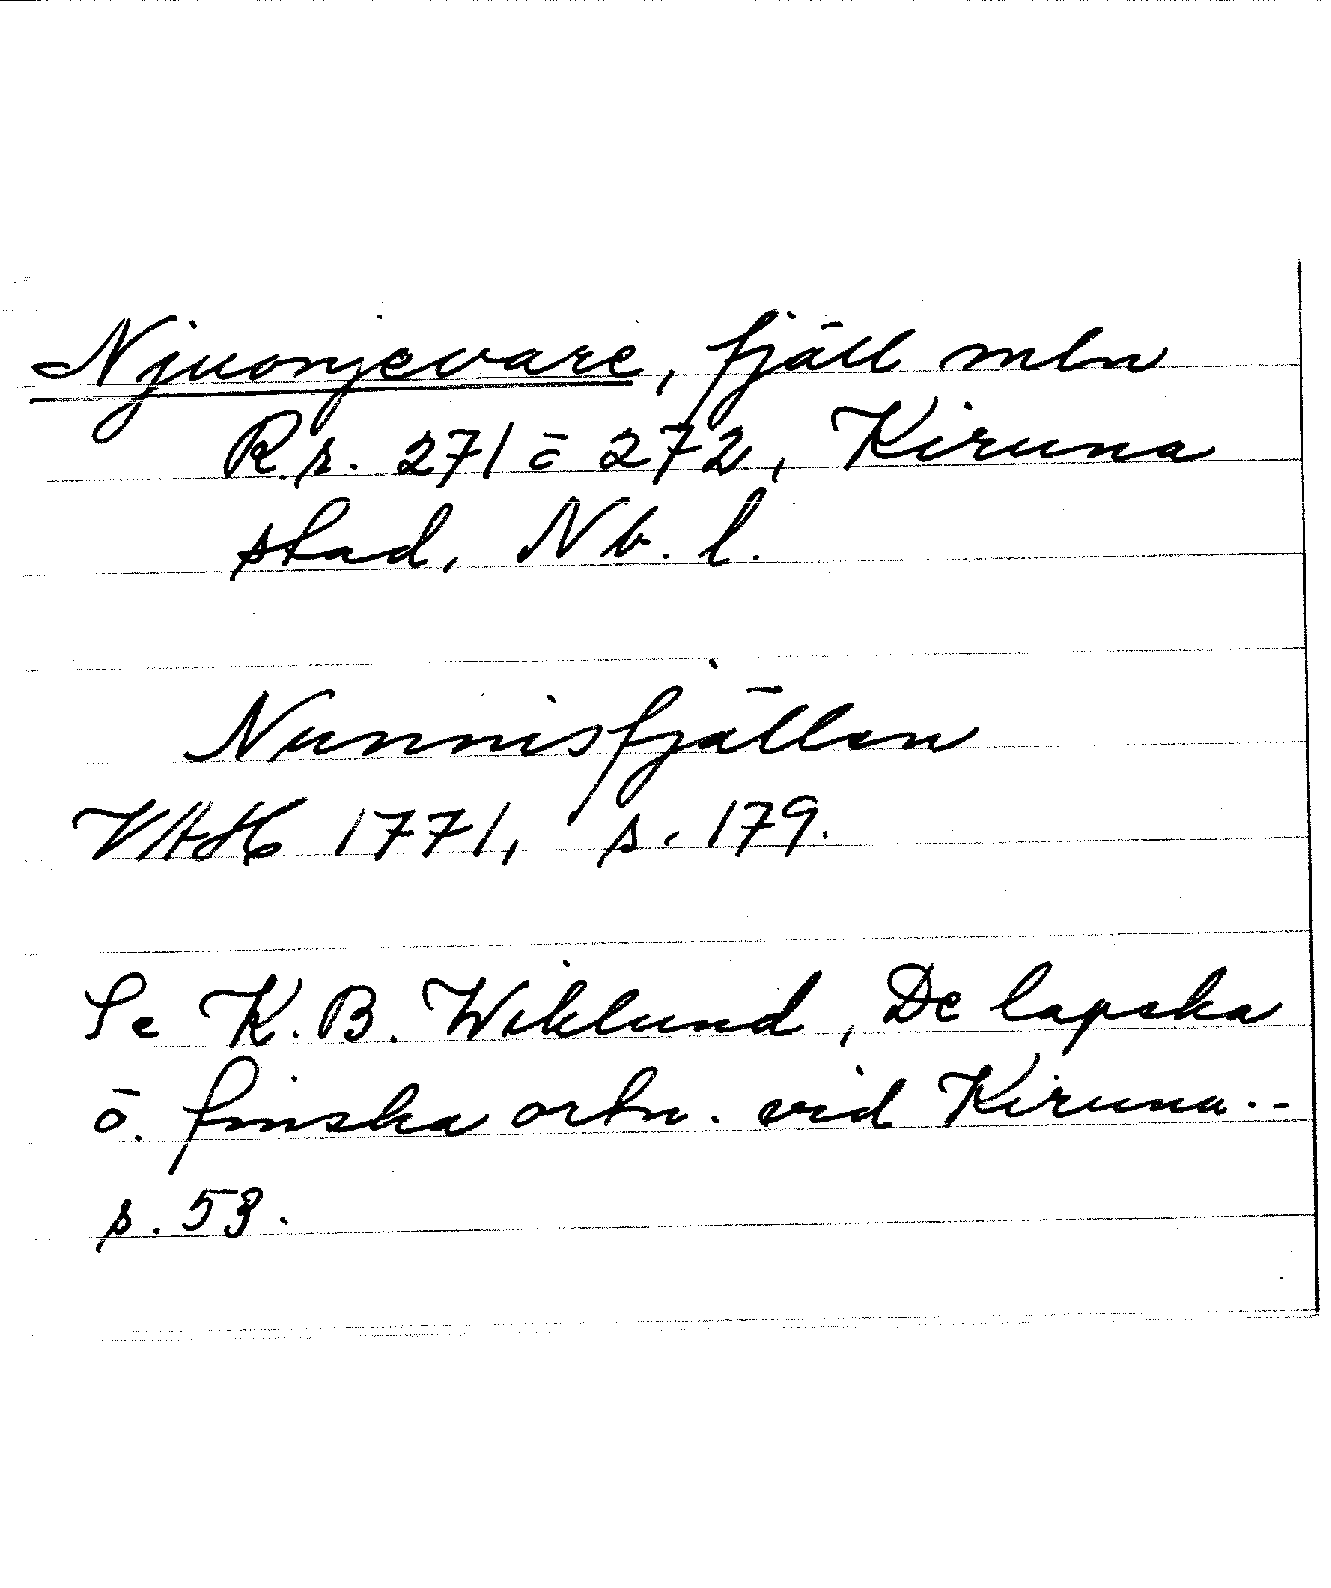 Njuonjevare, fjäll mln
R.r. 271 o 272, Kiruna
stad, Nb. l.
Nunnisfjällen
VAH 1771, s. 179.
Se K.B. Wiklund, De lapska
o. finska ortn. vid Kiruna..
s. 53.